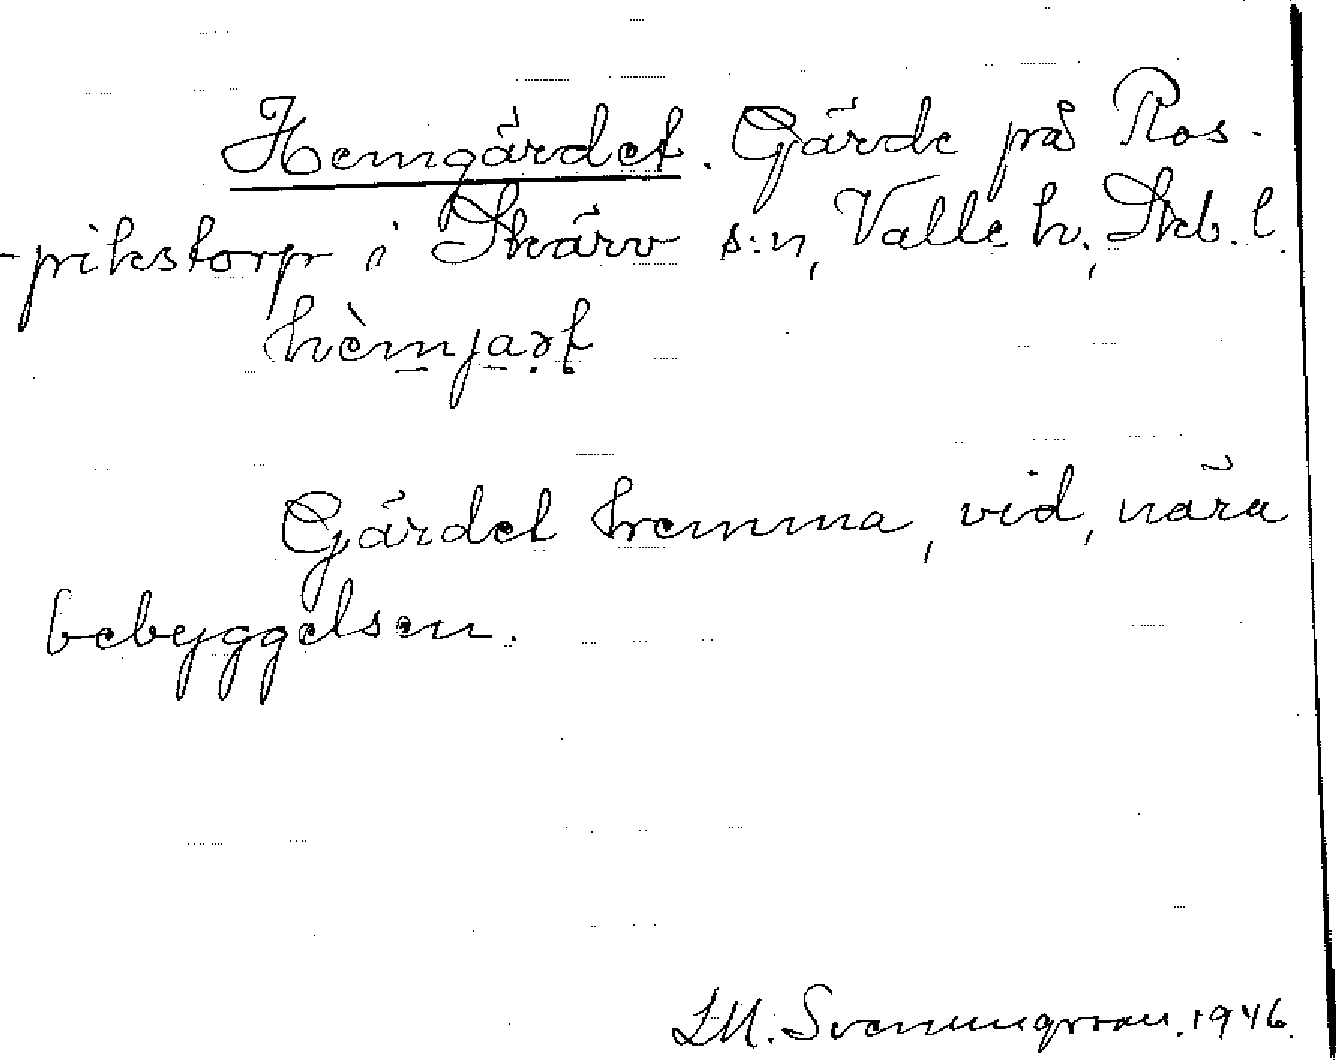 Hemgärdet. Gärde på Ros-
-pikstorp i Skärv s:n, Valle h., Skb. l.
hèmjaṛṭ
Gärdet hemma, vid, nära
bebyggelsen.
L.M. Svenungsson. 1946.